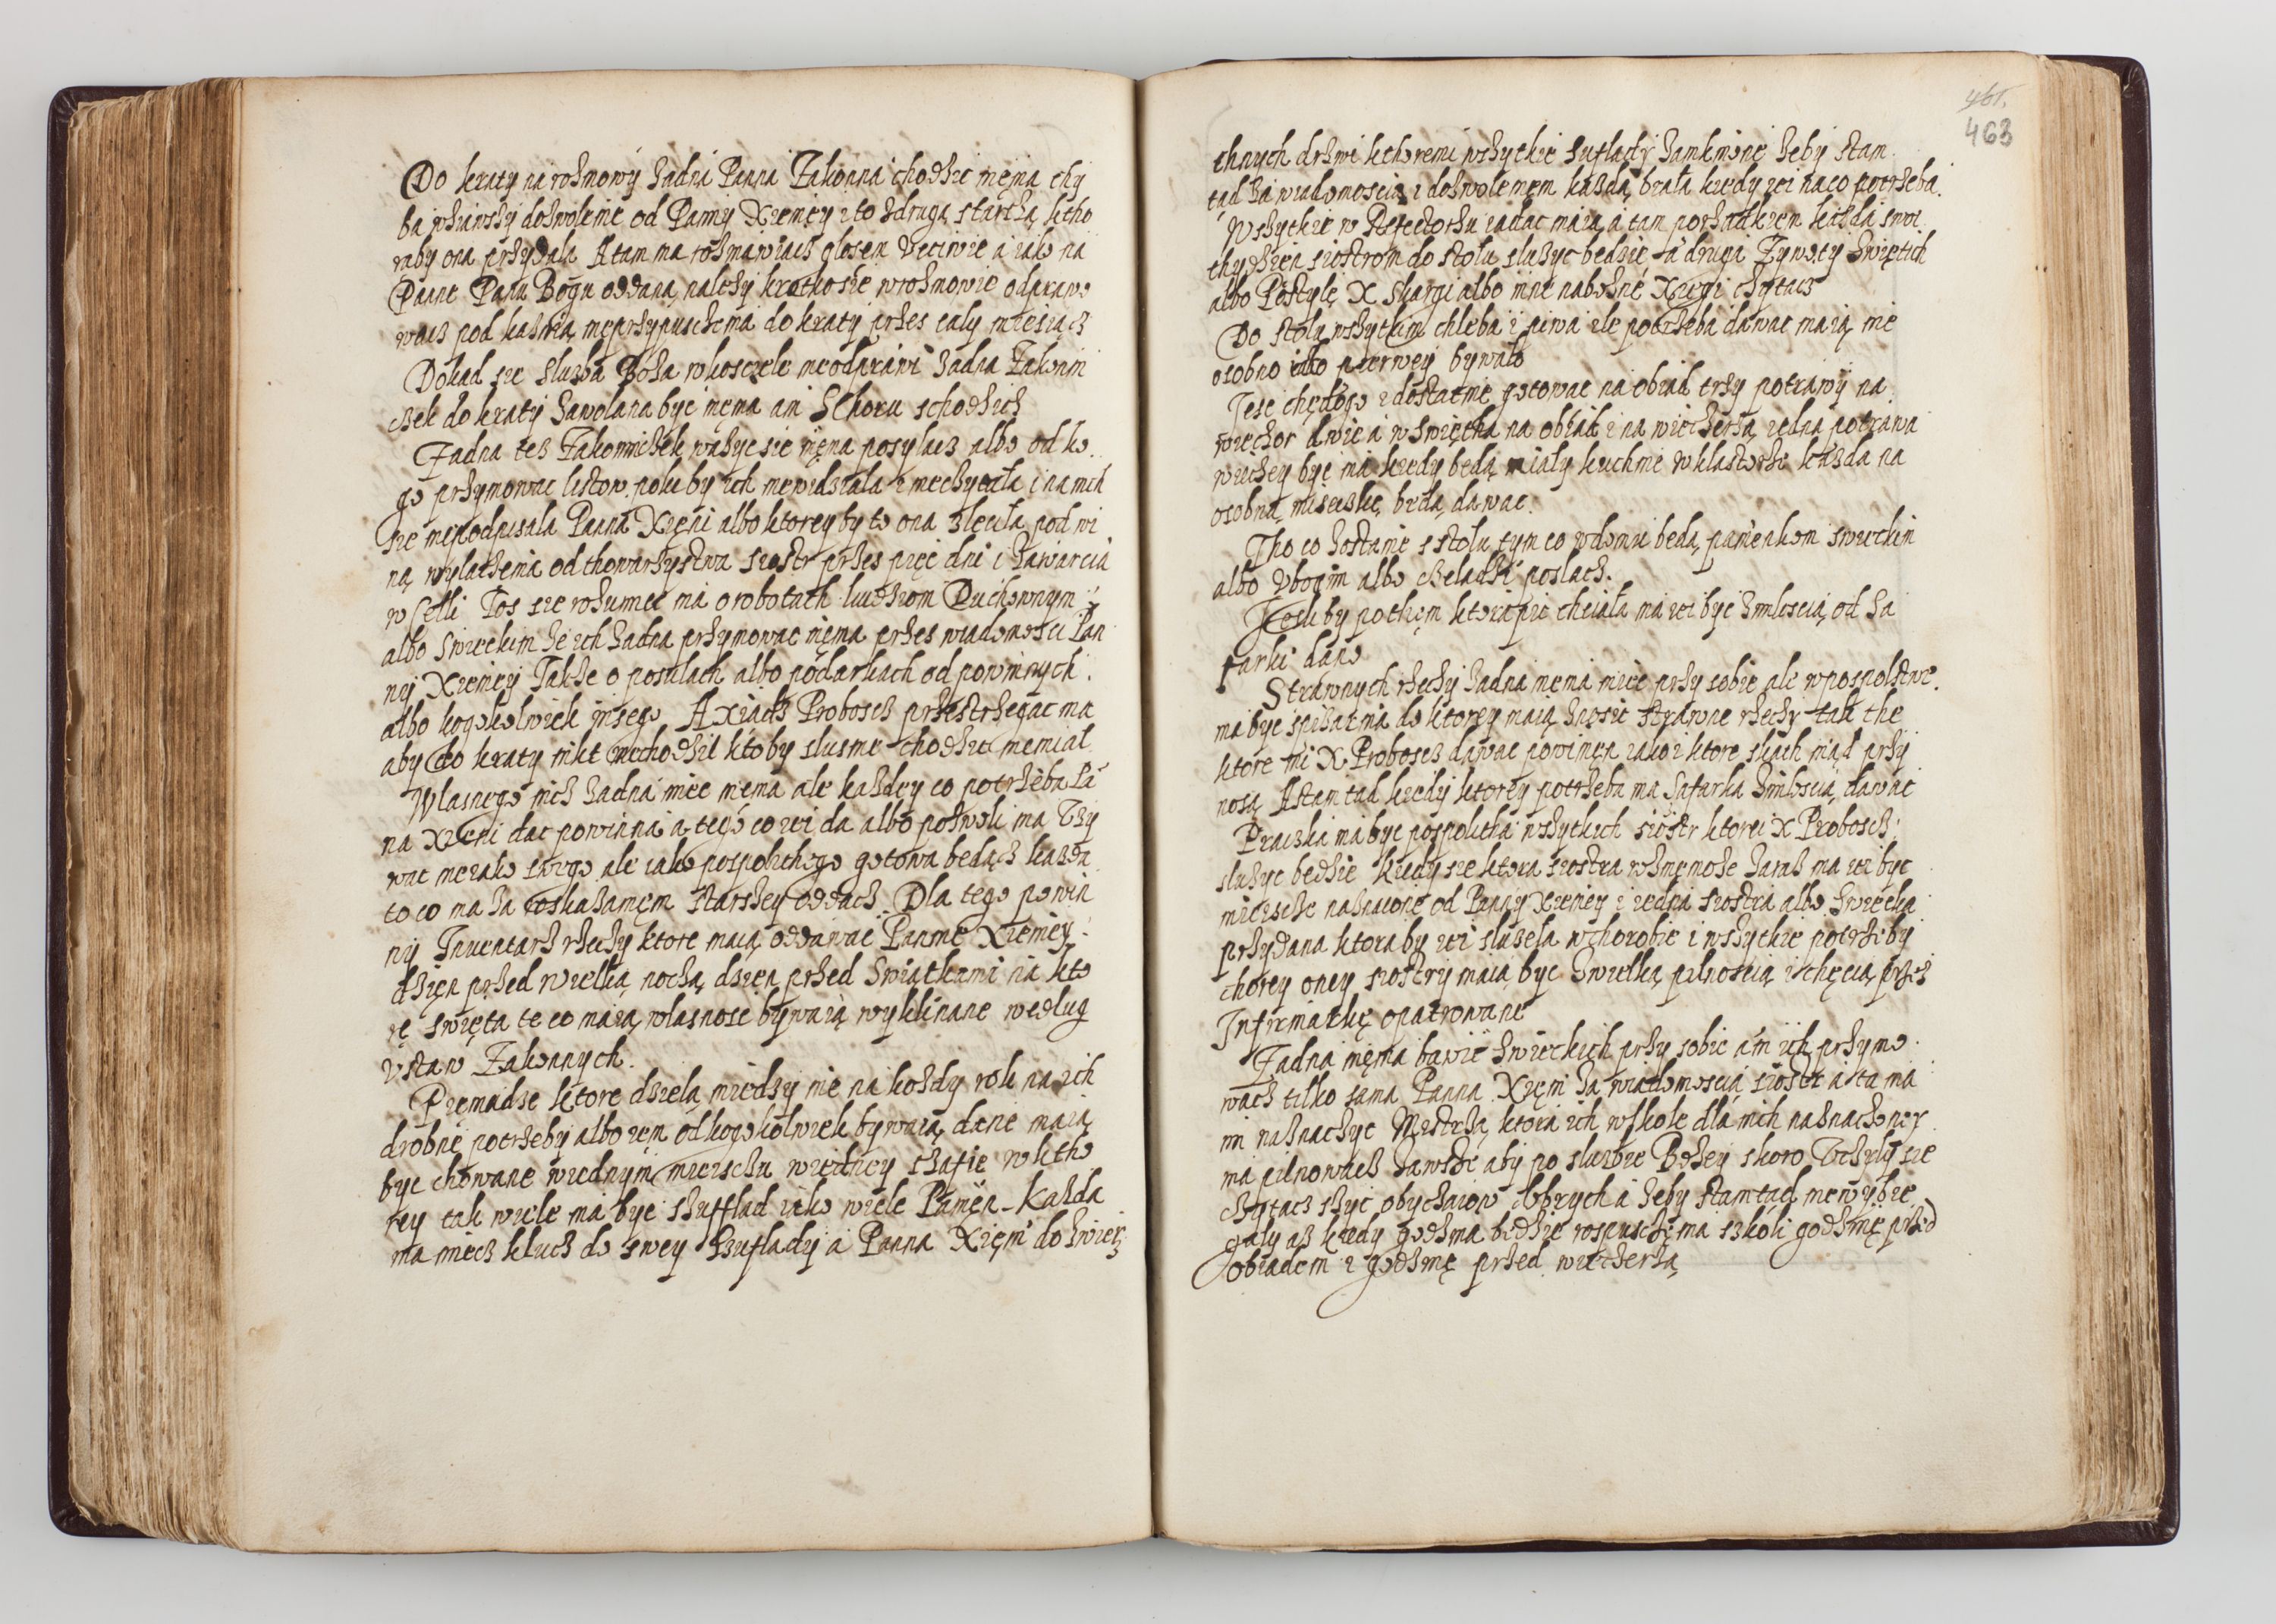 Do kraty na rozmowy żadna Panna Zakonna chodzic niema chy
ba wziawszy dozwolenie od Panny Xieniey i to z drugą starszą ktho
raby ona przydała A tam ma rozmawiacz głosem Vcciwie a iako na
Panne Panu Bogu oddaną nalezy krotko sie w rozmowie odprawo
wacz pod kaźnią nieprzypusczenia do kraty przes cały miesiącz
Dokąd sie służba Boża w kosciele nieodprawi żadna Zakonni
czek do kraty zawołana byc niema ani z Choru schodzicz
Zadna tez Zakonniczek ważyc sie niema posyłacz albo od ko
go przymowac listow poki by ich niewidziała i nieczytała i na nich
sie niepodpisała Panna Xięni albo ktorey by to ona zleciła pod wi
ną wyłaczenia od thowarzystwa siostr przes pięc dni i zawarcia
w Celli Tos sie rozumiec ma o robotach ludziom Duchownym
albo swieckim ze ich żadna przymowac niema przes wiadomosci Pan
ny Xieniey Takze o posułach albo podarkach od powinnych
albo kogokolwiek inszego A Xiądz Proboscz przestrzegac ma
aby do kraty nikt niechodził ktoby slusznie chodzic niemiał
Własnego nicz żadna miec niema ale każdey co potrzeba Pā
na Xieni dac powinna a tego co iei da albo pozwoli ma Vży
wac nie iako swego ale iako pospolithego gotowa będącz każda
to co ma za roskazaniem starszey oddacz Dla tego powin
ny Inwentarz rzeczy ktore maią oddawac Pannie Xieniey
dzien przed wielką nocą, dzien przed Swiątkami na kto
re swięta te co maią własnosc bywaią wyklinane według
Vstaw Zakonnych.
Pieniadze ktore dzielą miedzy nie na kożdy rok na ich
drobne potrzeby albo iem od kogokolwiek bywaią dane maią
byc chowane wiednym mieisczu wiedney szafie w ktho
rey tak wiele ma byc szufflad iako wiele Panien Każda
ma miecz klucz do swey szuflady a Panna Xięni do zwierz
461.
463
chnych drzwi kthoremi wszytkie suflady zamknione żeby stam
tąd za wiadomoscią i dozwoleniem każda brała kiedy iei na co potrzeba.
Wszytkie w Refectorzu iadac maią a tam porządkiem każda swoi
thydzien siostrom do stołu służyc bedzie a druga Zywoty Swiętich
albo Postylę X Skargi albo inne nabożne Xięgi czytacz
Do stołu wszytkim chleba i piwa ile potrzeba dawac maią nie
osobno iako pierwey bywało
Jesc chędogo i dostatnie gotowac na obiad trzy potrawy na
wieczor dwie a w swiętha na obiad i na wieczerzą iedna potrawa
wiecey byc ma kiedy bedą miały kuchnie w klastorze każda na
osobną miseczkę bedą dawac.
Tho co zostanie s stołu tym co w domu bedą panienkom swieckim
albo Vbogim albo czeladzi posłacz.
Jesli by pothym ktora pic chciała ma iei byc z miłoscią od sza
farki dano
Strawnych rzeczy żadna niema miec przy sobie ale w pospolstwe
ma byc spizarnia do ktorey maią znosic strawne rzeczy tak the
ktore im X Probosca dawac powinien iako i ktore skąd inąd przy
noszą A stamtad kiedy ktorey potrzeba ma Szafarka z miłoscią dawac
Praczka ma byc pospolitha wszytkich siostr ktorei X Probosca
służyc bedzie Kiedy sie ktora siostra rozniemoże zaraz ma iei byc
mieiscze naznaczone od Panny Xieniey i iedna siostra albo swiecka
przydana ktora by iei służeła w chorobie i wszytkie potrzeby
chorey oney siostry maią byc z wielką pilnoscią i chęcią przes
Infirmarkę opatrowane
Zadna niema bawic swieckich przy sobie ani ich przymo
wacz tilko sama Panna Xięni za wiadomoscią siostr a ta ma
im naznaczyc Mistrzą ktora ich w szkole dla nich naznaczoney
ma pilnowacz zawsze aby po słuzbie Bożey skoro Vczyły sie
czytacz szyc obyczaiow dobrych a żeby stamtad niewybie
gały aż kiedy godzina bedzie rospuszczenia szkoli godzinę przed
obiadem i godzinę przed wieczerzą